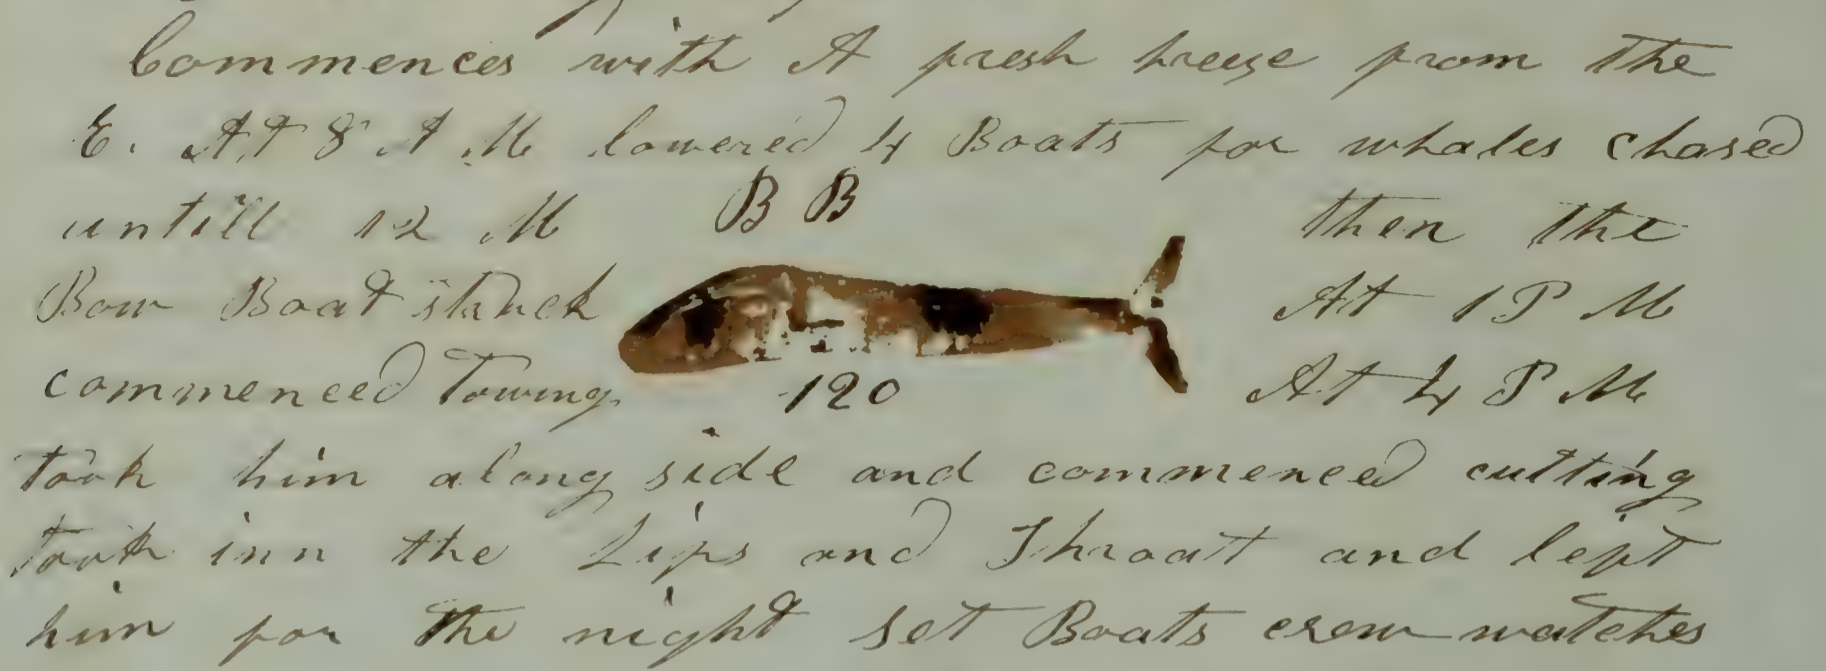 Commences with A fresh breeze from The
E. At 8 A M lowered 4 Boats for whales chased
untill 12 M B B then the
Bow Boat struck At 1 P M
commenced Towing 120 At 4 P M
took him along side and commenced cutting
took inn the Lips and Throat and left
him for the night set Boats crew watches